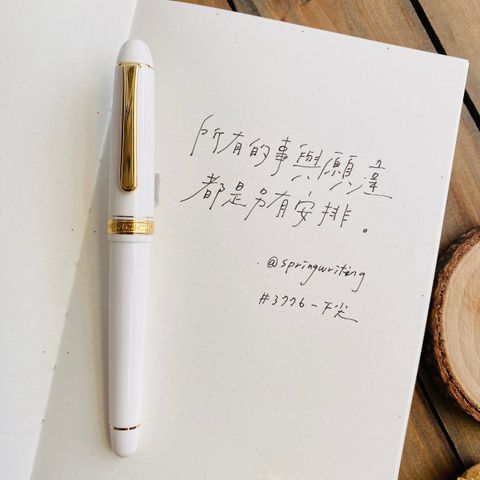 所有的事與願違
都是另有安排。
@springwriting
#3776-F尖